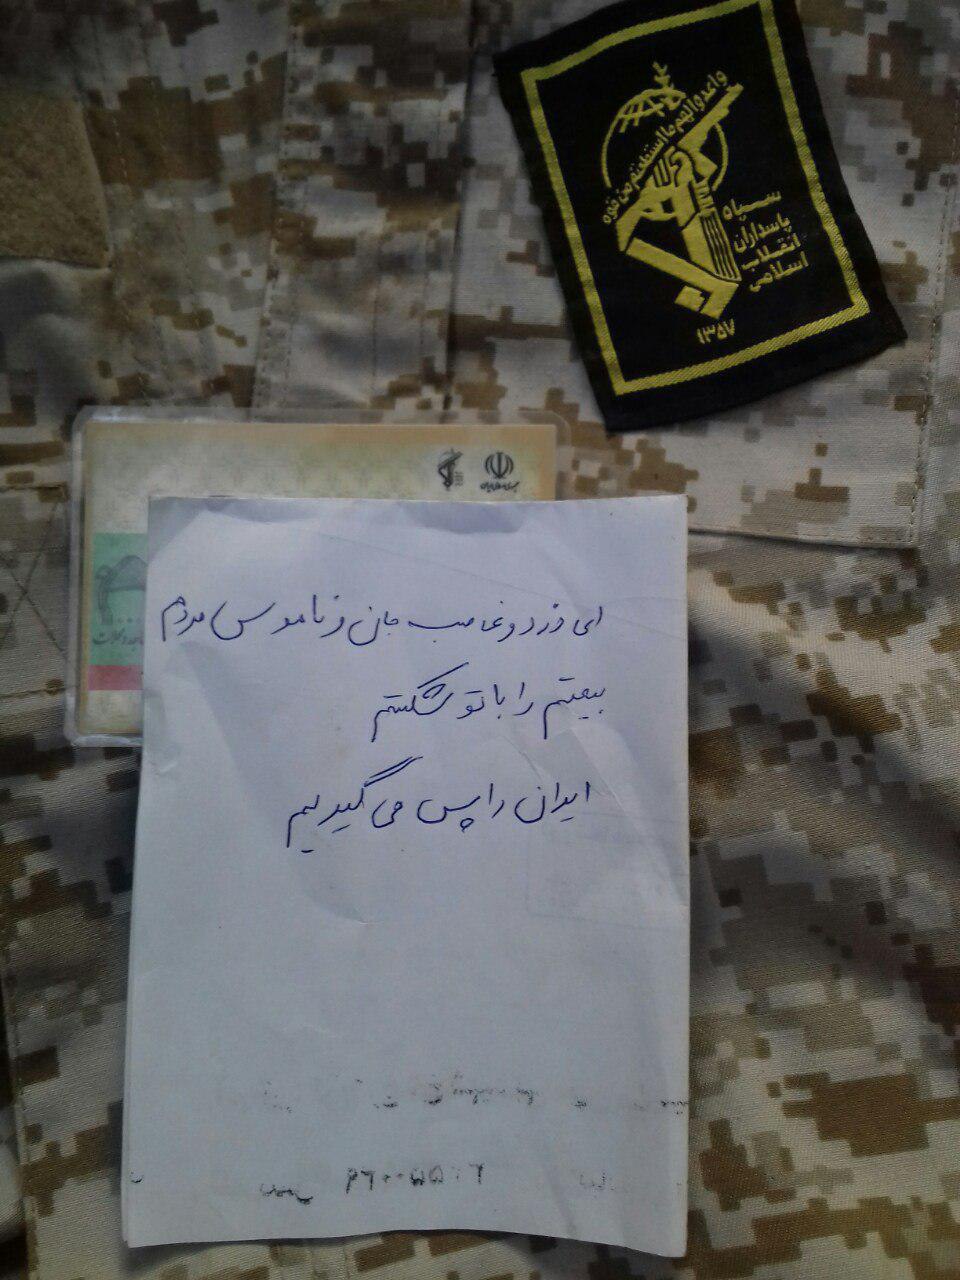 واعدوا لهم ما استطعتم من قوة
سپاه
پاسداران
انقلاب
اسلامی
۱۳۵۷
ای دزد و غاصب جان و ناموس مردم
بیعتم را با تو شکستم
ایران را پس می گیریم